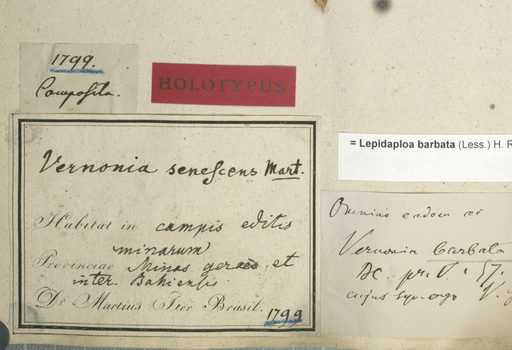 1799.
Composita.
HOLOTYPUS
Vernonia senescens Mart.
Habitat in campis editis
minarum
Provinciae Minas geraës, et
inter. Bahiensis
Dr. Martius Iter Brasil. 1799
= Lepidaploa barbata (Less.) H. R
Omnino eadem ac
Vernonia barbata
DC. pr. V. 57.
cujus syn. ergo V.